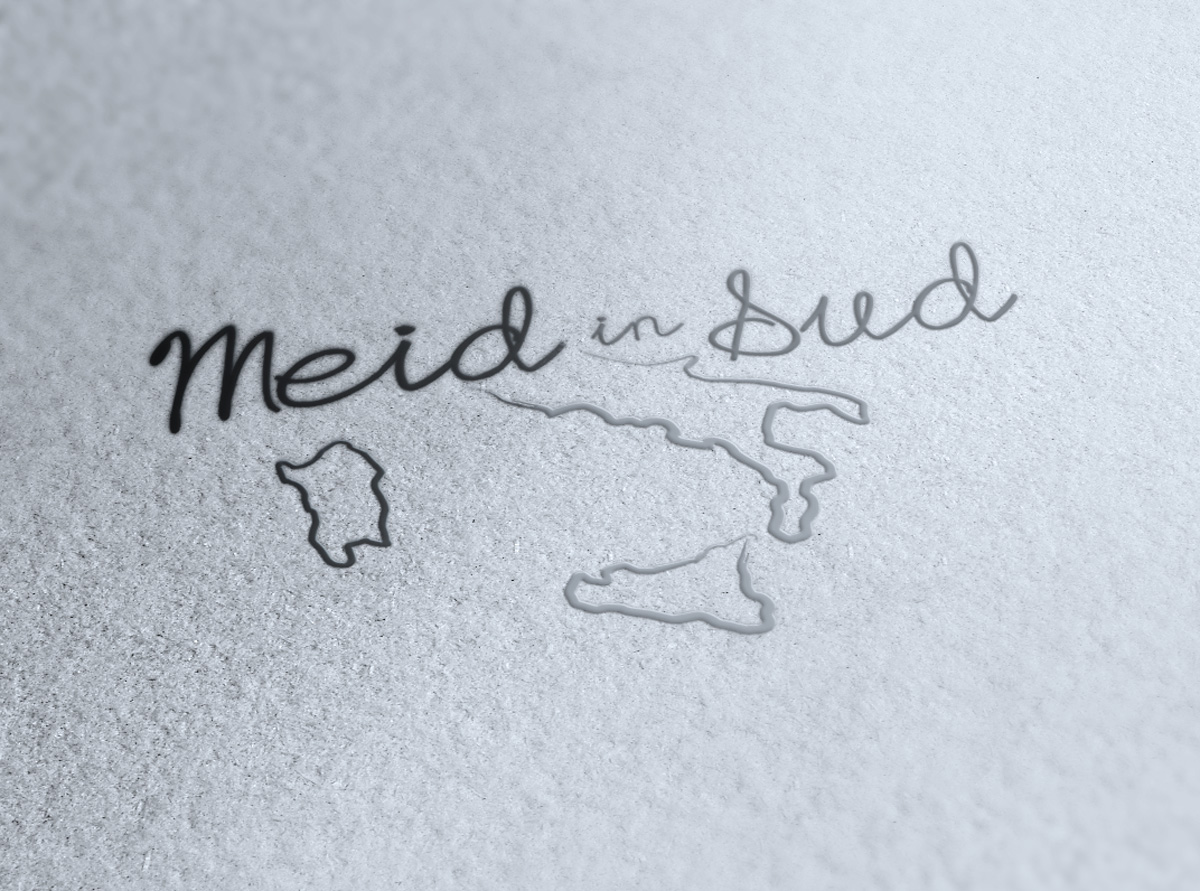 Meid in Sud